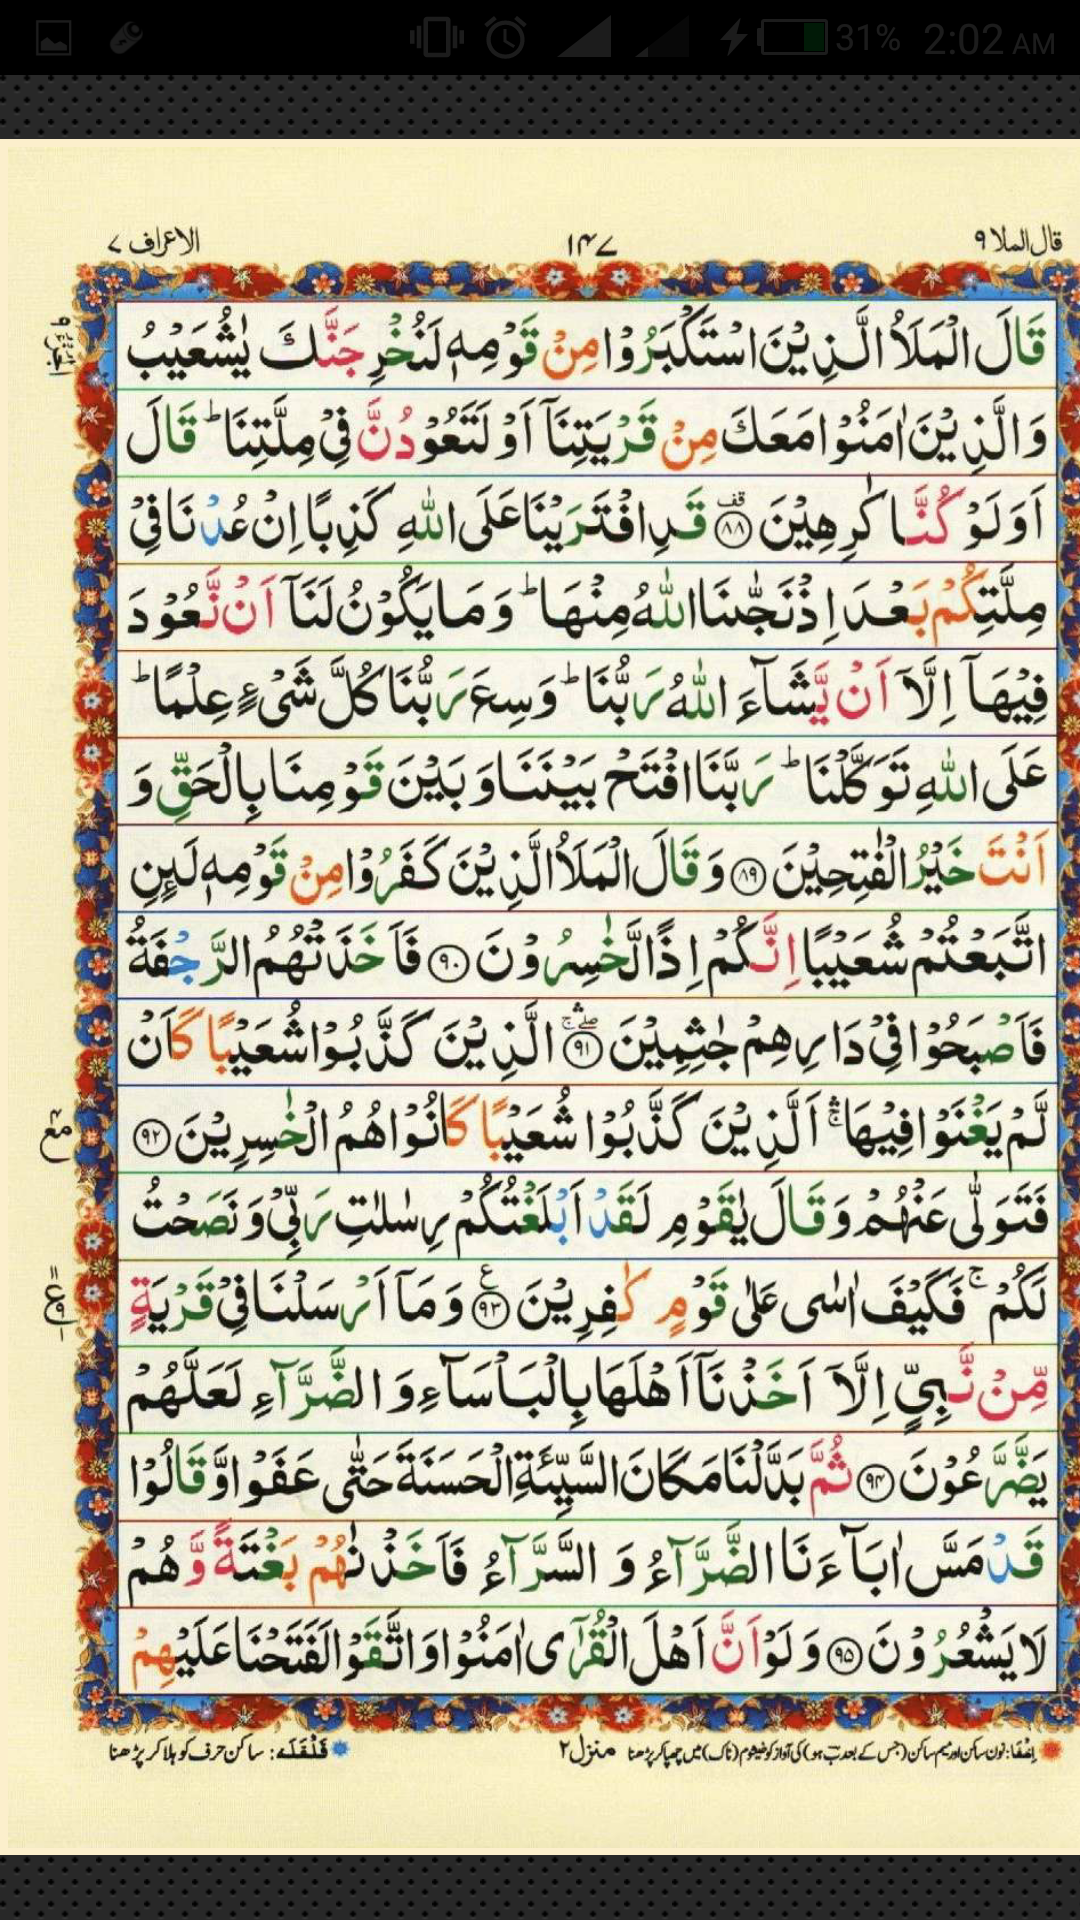 31% 2:02 AM
قال الملا ۹ ۱۴۷ الاعراف ۷
قَالَ الْمَلَاُ الَّذِيْنَ اسْتَكْبَرُوْا مِنْ قَوْمِهٖ لَنُخْرِجَنَّكَ يٰشُعَيْبُ
وَالَّذِيْنَ اٰمَنُوْا مَعَكَ مِنْ قَرْيَتِنَاۤ اَوْ لَتَعُوْدُنَّ فِيْ مِلَّتِنَا ؕ قَالَ
اَوَلَوْ كُنَّا كٰرِهِيْنَ ﴿۸۸﴾ قف قَدِ افْتَرَيْنَا عَلَى اللّٰهِ كَذِبًا اِنْ عُدْنَا فِيْ
مِلَّتِكُمْ بَعْدَ اِذْ نَجّٰىنَا اللّٰهُ مِنْهَا ؕ وَمَا يَكُوْنُ لَنَاۤ اَنْ نَّعُوْدَ
فِيْهَاۤ اِلَّاۤ اَنْ يَّشَآءَ اللّٰهُ رَبُّنَا ؕ وَسِعَ رَبُّنَا كُلَّ شَيْءٍ عِلْمًا ؕ
عَلَى اللّٰهِ تَوَكَّلْنَا ؕ رَبَّنَا افْتَحْ بَيْنَنَا وَبَيْنَ قَوْمِنَا بِالْحَقِّ وَ
اَنْتَ خَيْرُ الْفٰتِحِيْنَ ﴿۸۹﴾ وَقَالَ الْمَلَاُ الَّذِيْنَ كَفَرُوْا مِنْ قَوْمِهٖ لَىِٕنِ
اتَّبَعْتُمْ شُعَيْبًا اِنَّكُمْ اِذًا لَّخٰسِرُوْنَ ﴿۹۰﴾ فَاَخَذَتْهُمُ الرَّجْفَةُ
فَاَصْبَحُوْا فِيْ دَارِهِمْ جٰثِمِيْنَ ﴿۹۱﴾ الَّذِيْنَ كَذَّبُوْا شُعَيْبًا كَاَنْ
لَّمْ يَغْنَوْا فِيْهَا ۛۚ اَلَّذِيْنَ كَذَّبُوْا شُعَيْبًا كَانُوْا هُمُ الْخٰسِرِيْنَ ﴿۹۲﴾
فَتَوَلّٰى عَنْهُمْ وَقَالَ يٰقَوْمِ لَقَدْ اَبْلَغْتُكُمْ رِسٰلٰتِ رَبِّيْ وَنَصَحْتُ
لَكُمْ ۚ فَكَيْفَ اٰسٰى عَلٰى قَوْمٍ كٰفِرِيْنَ ﴿۹۳﴾ ع وَمَاۤ اَرْسَلْنَا فِيْ قَرْيَةٍ
مِّنْ نَّبِيٍّ اِلَّاۤ اَخَذْنَاۤ اَهْلَهَا بِالْبَاْسَآءِ وَالضَّرَّآءِ لَعَلَّهُمْ
يَضَّرَّعُوْنَ ﴿۹۴﴾ ثُمَّ بَدَّلْنَا مَكَانَ السَّيِّئَةِ الْحَسَنَةَ حَتّٰى عَفَوْا وَّقَالُوْا
قَدْ مَسَّ اٰبَآءَنَا الضَّرَّآءُ وَالسَّرَّآءُ فَاَخَذْنٰهُمْ بَغْتَةً وَّهُمْ
لَا يَشْعُرُوْنَ ﴿۹۵﴾ وَلَوْ اَنَّ اَهْلَ الْقُرٰۤى اٰمَنُوْا وَاتَّقَوْا لَفَتَحْنَا عَلَيْهِمْ
اخفا: نون ساکن اور میم ساکن (جس کے بعد ب ہو) کی آواز کو خیشوم (ناک) میں چھپا کر پڑھنا منزل ۲ قلقلہ: ساکن حرف کو ہلا کر پڑھنا